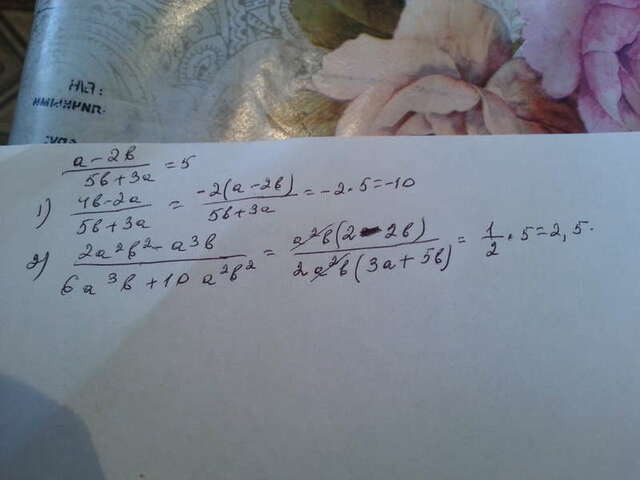 a-2b/5b+3a = 5
1) 4b-2a/5b+3a = -2(a-2b)/5b+3a = -2·5=-10
2) 2a²b²-a³b/6a³b+10a²b² = a²b(2-2b)/2a²b(3a+5b) = 1/2·5=2,5.